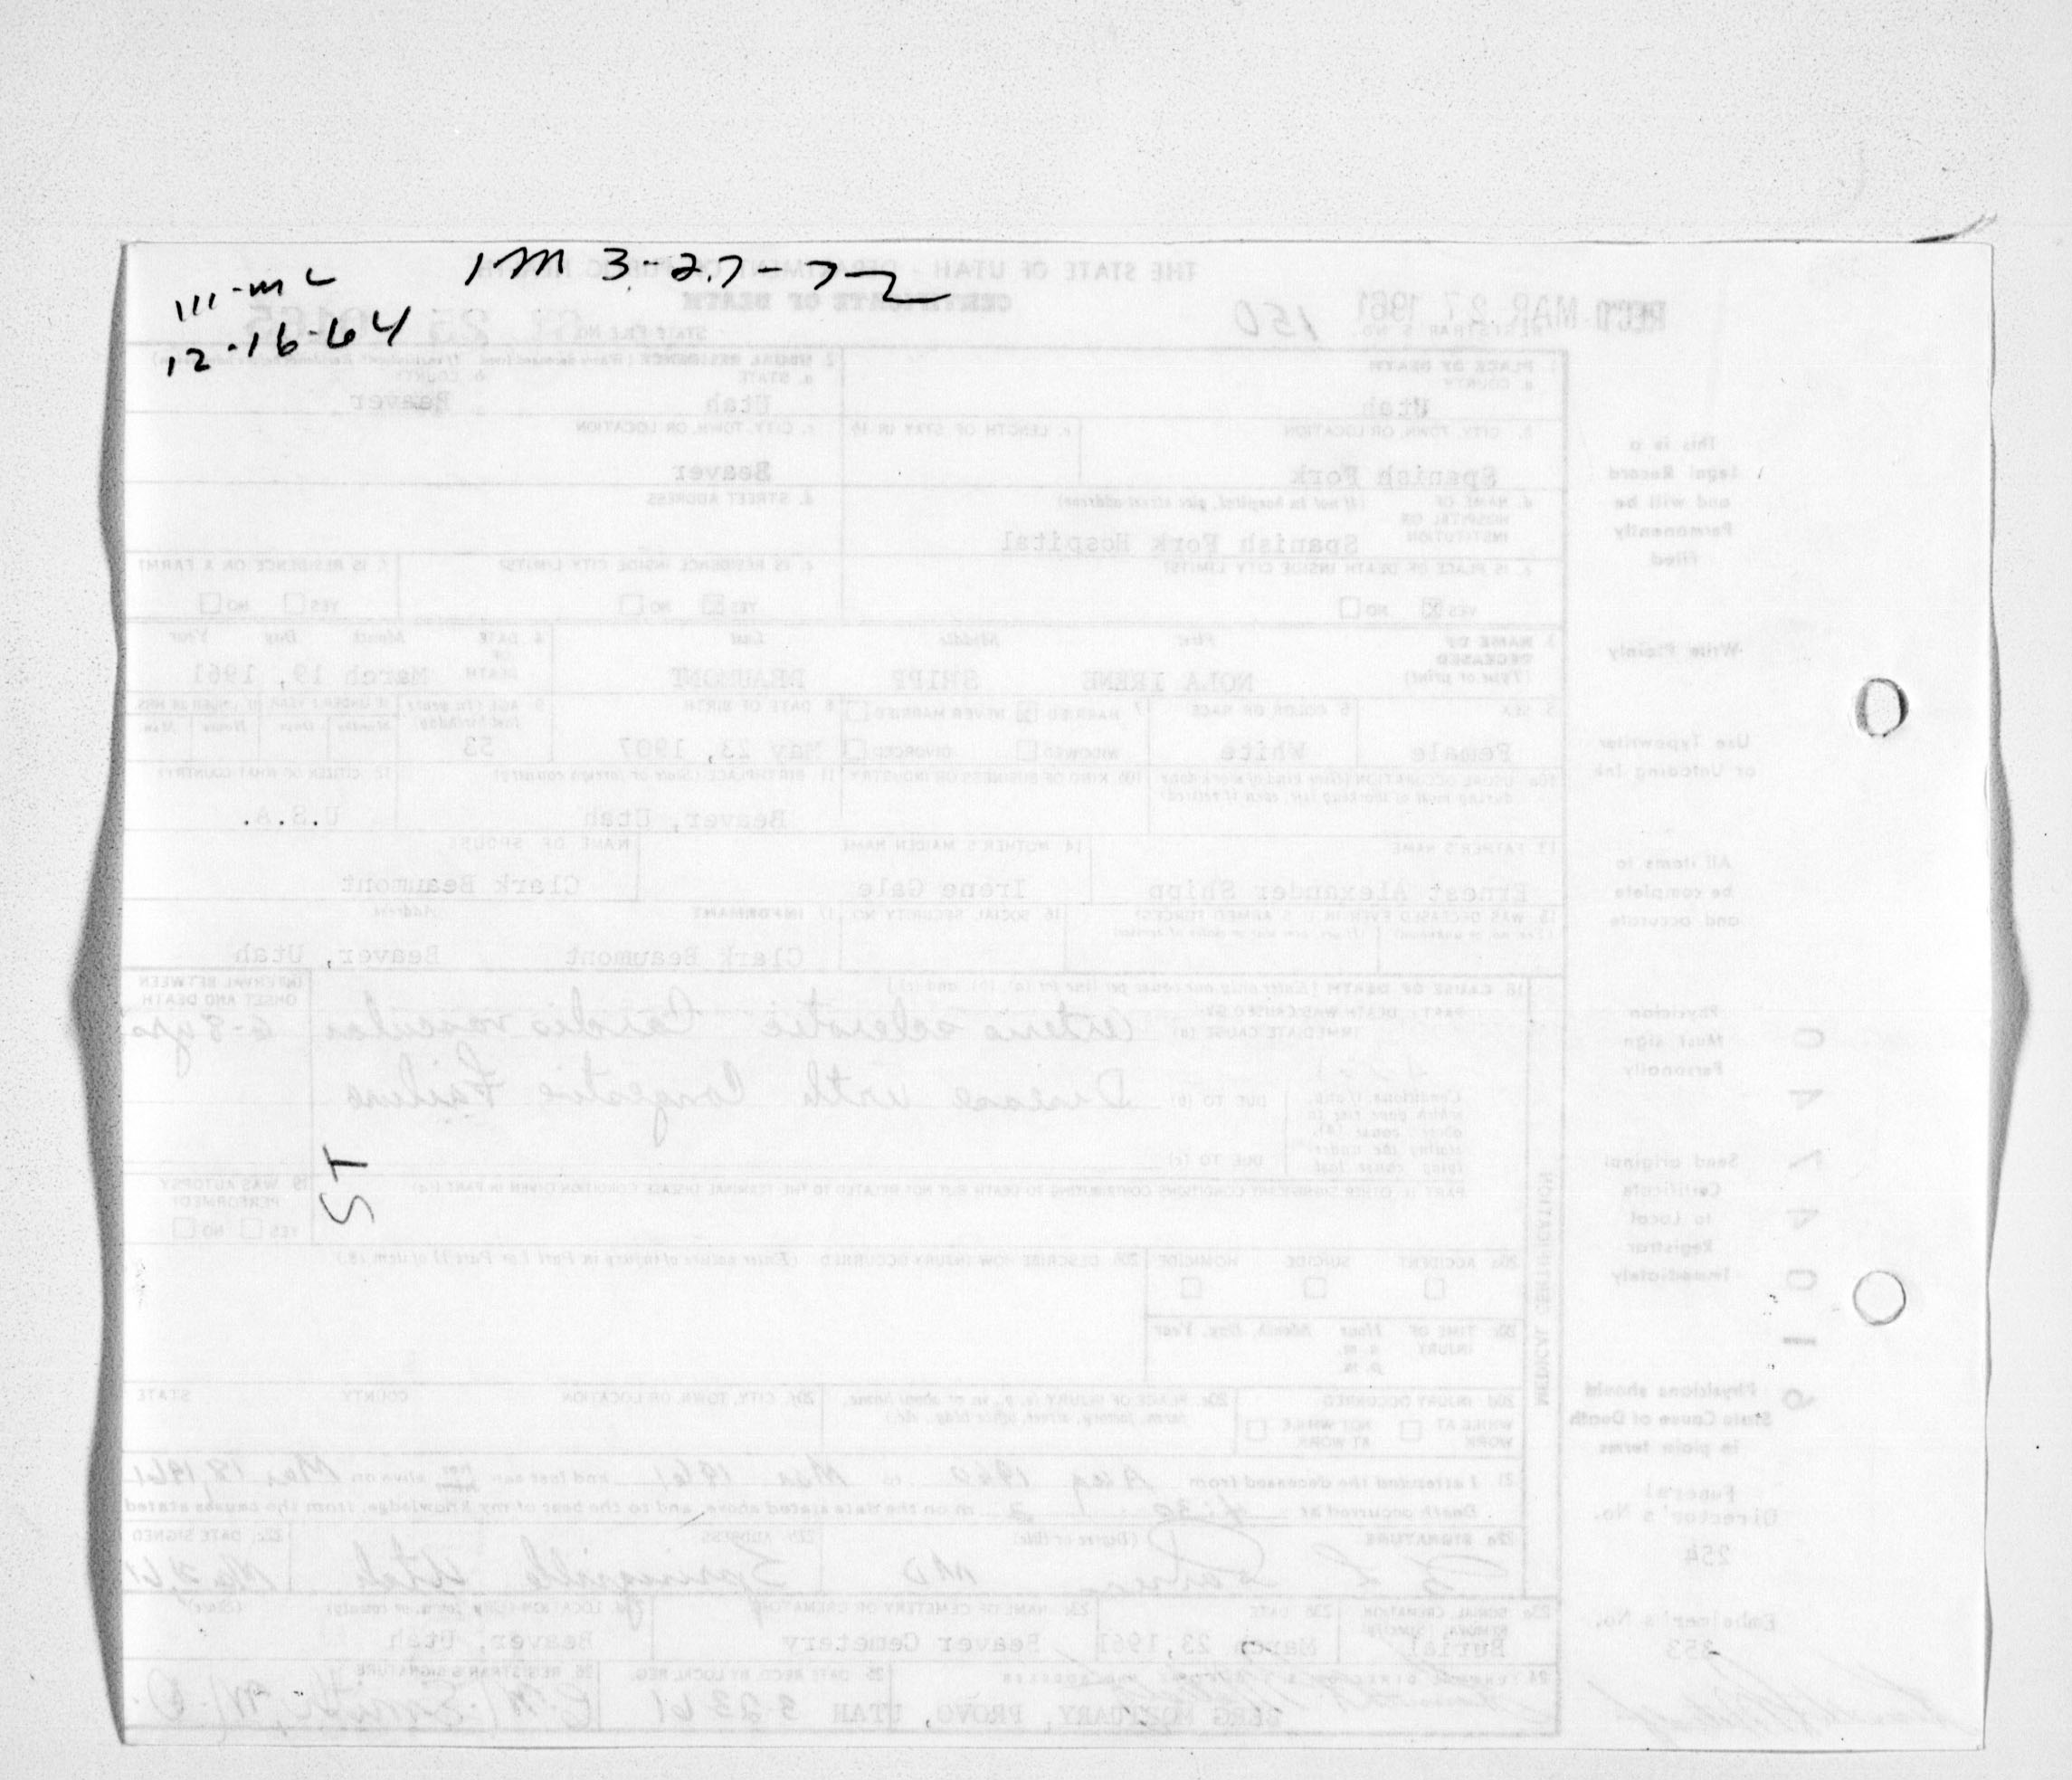 1M 3-27-72
111-mc
12-16-64
ST
THE STATE OF UTAH - DEPARTMENT OF PUBLIC HEALTH
CERTIFICATE OF DEATH
REC'D MAR 27 1961
REGISTRAR'S NO. 150
STATE FILE NO.
1. PLACE OF DEATH
a. COUNTY
Utah
2. USUAL RESIDENCE
a. STATE
Utah
b. COUNTY
Beaver
b. CITY, TOWN, OR LOCATION
Spanish Fork
c. LENGTH OF STAY IN 1b
c. CITY, TOWN, OR LOCATION
Beaver
d. NAME OF HOSPITAL OR INSTITUTION (If not in hospital, give street address)
Spanish Fork Hospital
d. STREET ADDRESS
e. IS PLACE OF DEATH INSIDE CITY LIMITS?
YES X NO
e. IS RESIDENCE INSIDE CITY LIMITS?
YES X NO
f. IS RESIDENCE ON A FARM?
YES NO
3. NAME OF DECEASED (Type or print)
First Middle Last
NOLA IRENE SHIPP BEAUMONT
4. DATE OF DEATH Month Day Year
March 19, 1961
5. SEX
Female
6. COLOR OR RACE
White
7. MARRIED X NEVER MARRIED
WIDOWED DIVORCED
8. DATE OF BIRTH
May 23, 1907
9. AGE (In years last birthday)
53
10a. USUAL OCCUPATION (Give kind of work done during most of working life, even if retired)
10b. KIND OF BUSINESS OR INDUSTRY
11. BIRTHPLACE (State or foreign country)
Beaver, Utah
12. CITIZEN OF WHAT COUNTRY?
U.S.A.
13. FATHER'S NAME
Ernest Alexander Shipp
14. MOTHER'S MAIDEN NAME
Irene Gale
NAME OF SPOUSE
Clark Beaumont
15. WAS DECEASED EVER IN U.S. ARMED FORCES?
16. SOCIAL SECURITY NO.
17. INFORMANT Address
Clark Beaumont Beaver, Utah
18. CAUSE OF DEATH [Enter only one cause per line for (a), (b), and (c).]
INTERVAL BETWEEN ONSET AND DEATH
PART I. DEATH WAS CAUSED BY:
IMMEDIATE CAUSE (a) Arterio sclerotic Cardio vascular 6-8 yrs
DUE TO (b) Disease with Congestive Failure
DUE TO (c)
PART II. OTHER SIGNIFICANT CONDITIONS CONTRIBUTING TO DEATH BUT NOT RELATED TO THE TERMINAL DISEASE CONDITION GIVEN IN PART I(a)
19. WAS AUTOPSY PERFORMED?
YES NO
MEDICAL CERTIFICATION
20a. ACCIDENT SUICIDE HOMICIDE
20b. DESCRIBE HOW INJURY OCCURRED (Enter nature of injury in Part I or Part II of item 18.)
20c. TIME OF INJURY Hour Month, Day, Year
a.m.
p.m.
20d. INJURY OCCURRED
WHILE AT WORK NOT WHILE AT WORK
20e. PLACE OF INJURY (e.g., in or about home, farm, factory, street, office bldg., etc.)
20f. CITY, TOWN, OR LOCATION COUNTY STATE
21. I attended the deceased from Aug 1960 to Mar 1961 and last saw her alive on Mar 18, 1961
Death occurred at 4:30 a m on the date stated above, and to the best of my knowledge, from the causes stated
22a. SIGNATURE (Degree or title)
MD
22b. ADDRESS
Springville Utah
22c. DATE SIGNED
23a. BURIAL, CREMATION, REMOVAL (Specify)
Burial
23b. DATE
March 23, 1961
23c. NAME OF CEMETERY OR CREMATORY
Beaver Cemetery
23d. LOCATION
Beaver, Utah
24. FUNERAL DIRECTOR'S SIGNATURE AND ADDRESS
BERG MORTUARY, PROVO, UTAH
25. DATE RECD. BY LOCAL REG.
3-23 61
26. REGISTRAR'S SIGNATURE
This is a
Legal Record
and will be
Permanently
Filed
Write Plainly
Use Typewriter
or Unfading Ink
All items to
be complete
and accurate
Physician
Must sign
Personally
Send original
Certificate
to Local
Registrar
Immediately
Physicians should
State Cause of Death
in plain terms
Funeral
Director's No.
254
Embalmer's No.
353